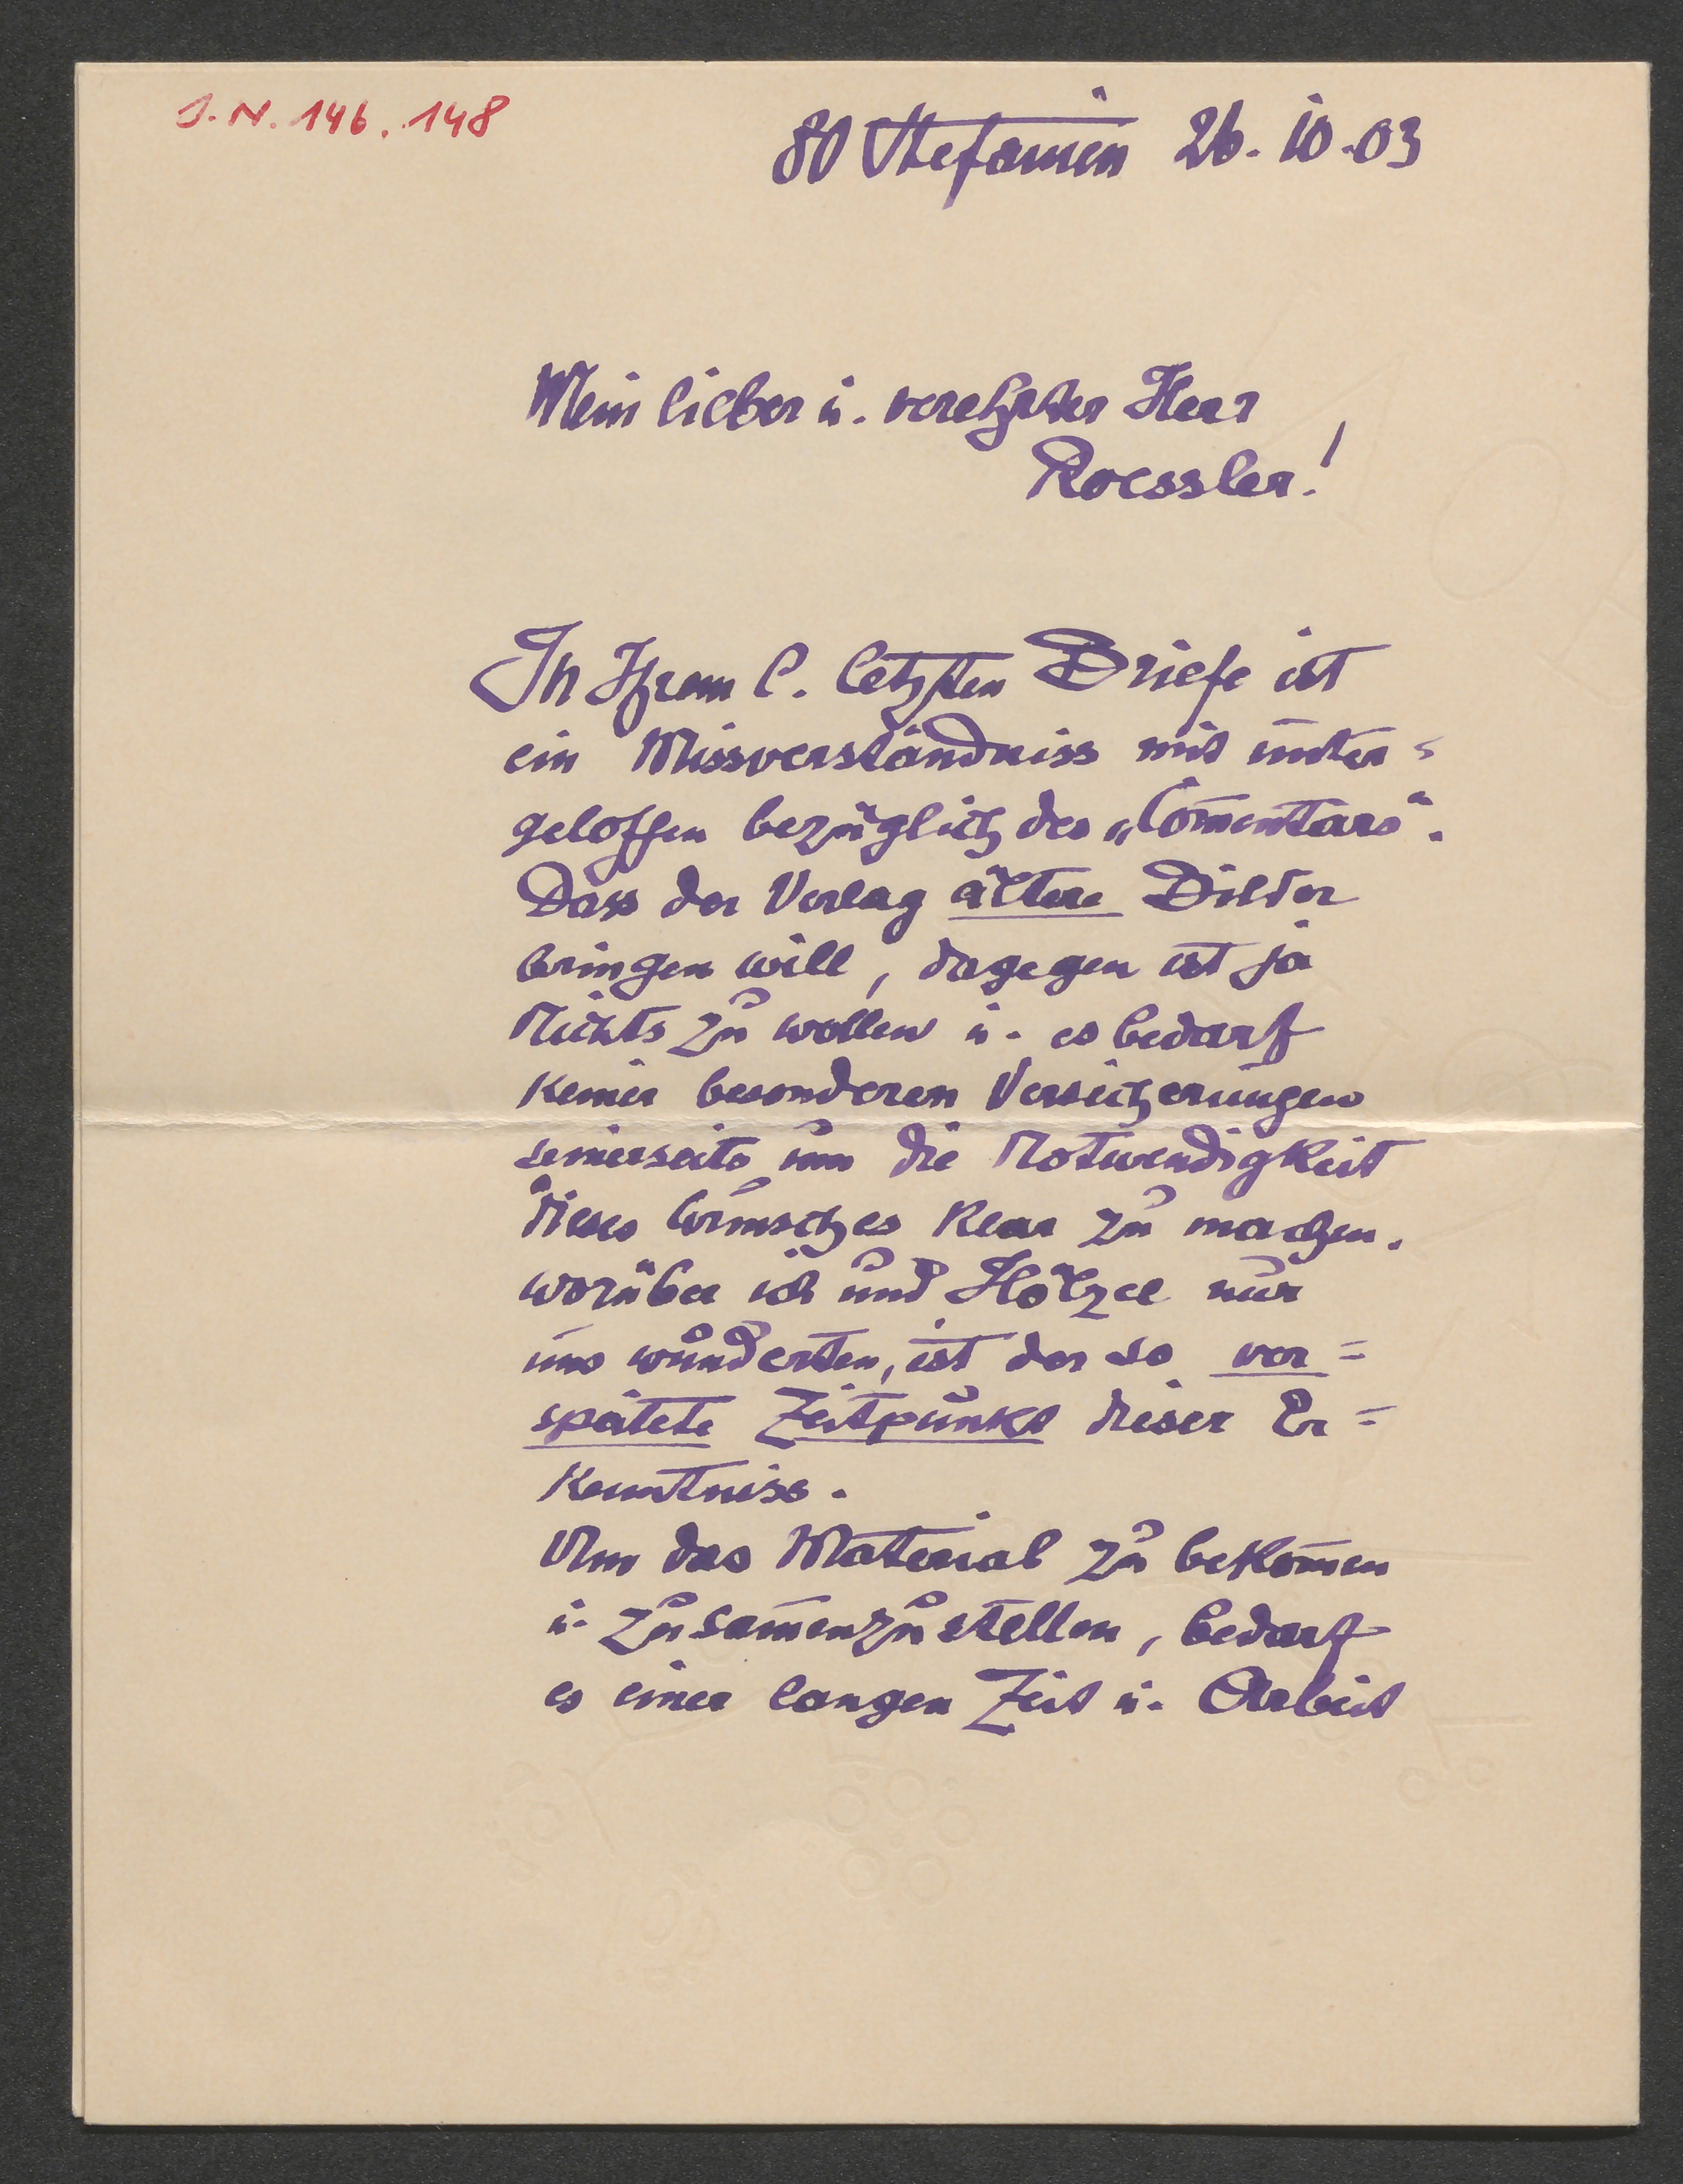 J.N. 146.148
80 Stefanien 26.10.03
Mein lieber u. verehrter Herr
Roessler!
In Ihrem l. letzten Briefe ist
ein Missverständniss mit unter=
geloffen bezüglich des „Com̄entars“.
Dass der Verlag ältere Bilder
bringen will, dagegen ist ja
Nichts zu wollen u. es bedarf
keiner besonderen Versicherungen
seinerseits um die Notwendigkeit
dieses Wunsches klar zu machen.
worüber ich und Hölzel nur
uns wunderten, ist der so ver=
spätete Zeitpunkt dieser Er=
kenntniss.
Um das Material zu bekom̄en
u. zusam̄enzustellen, bedarf
es einer langen Zeit u. Arbeit